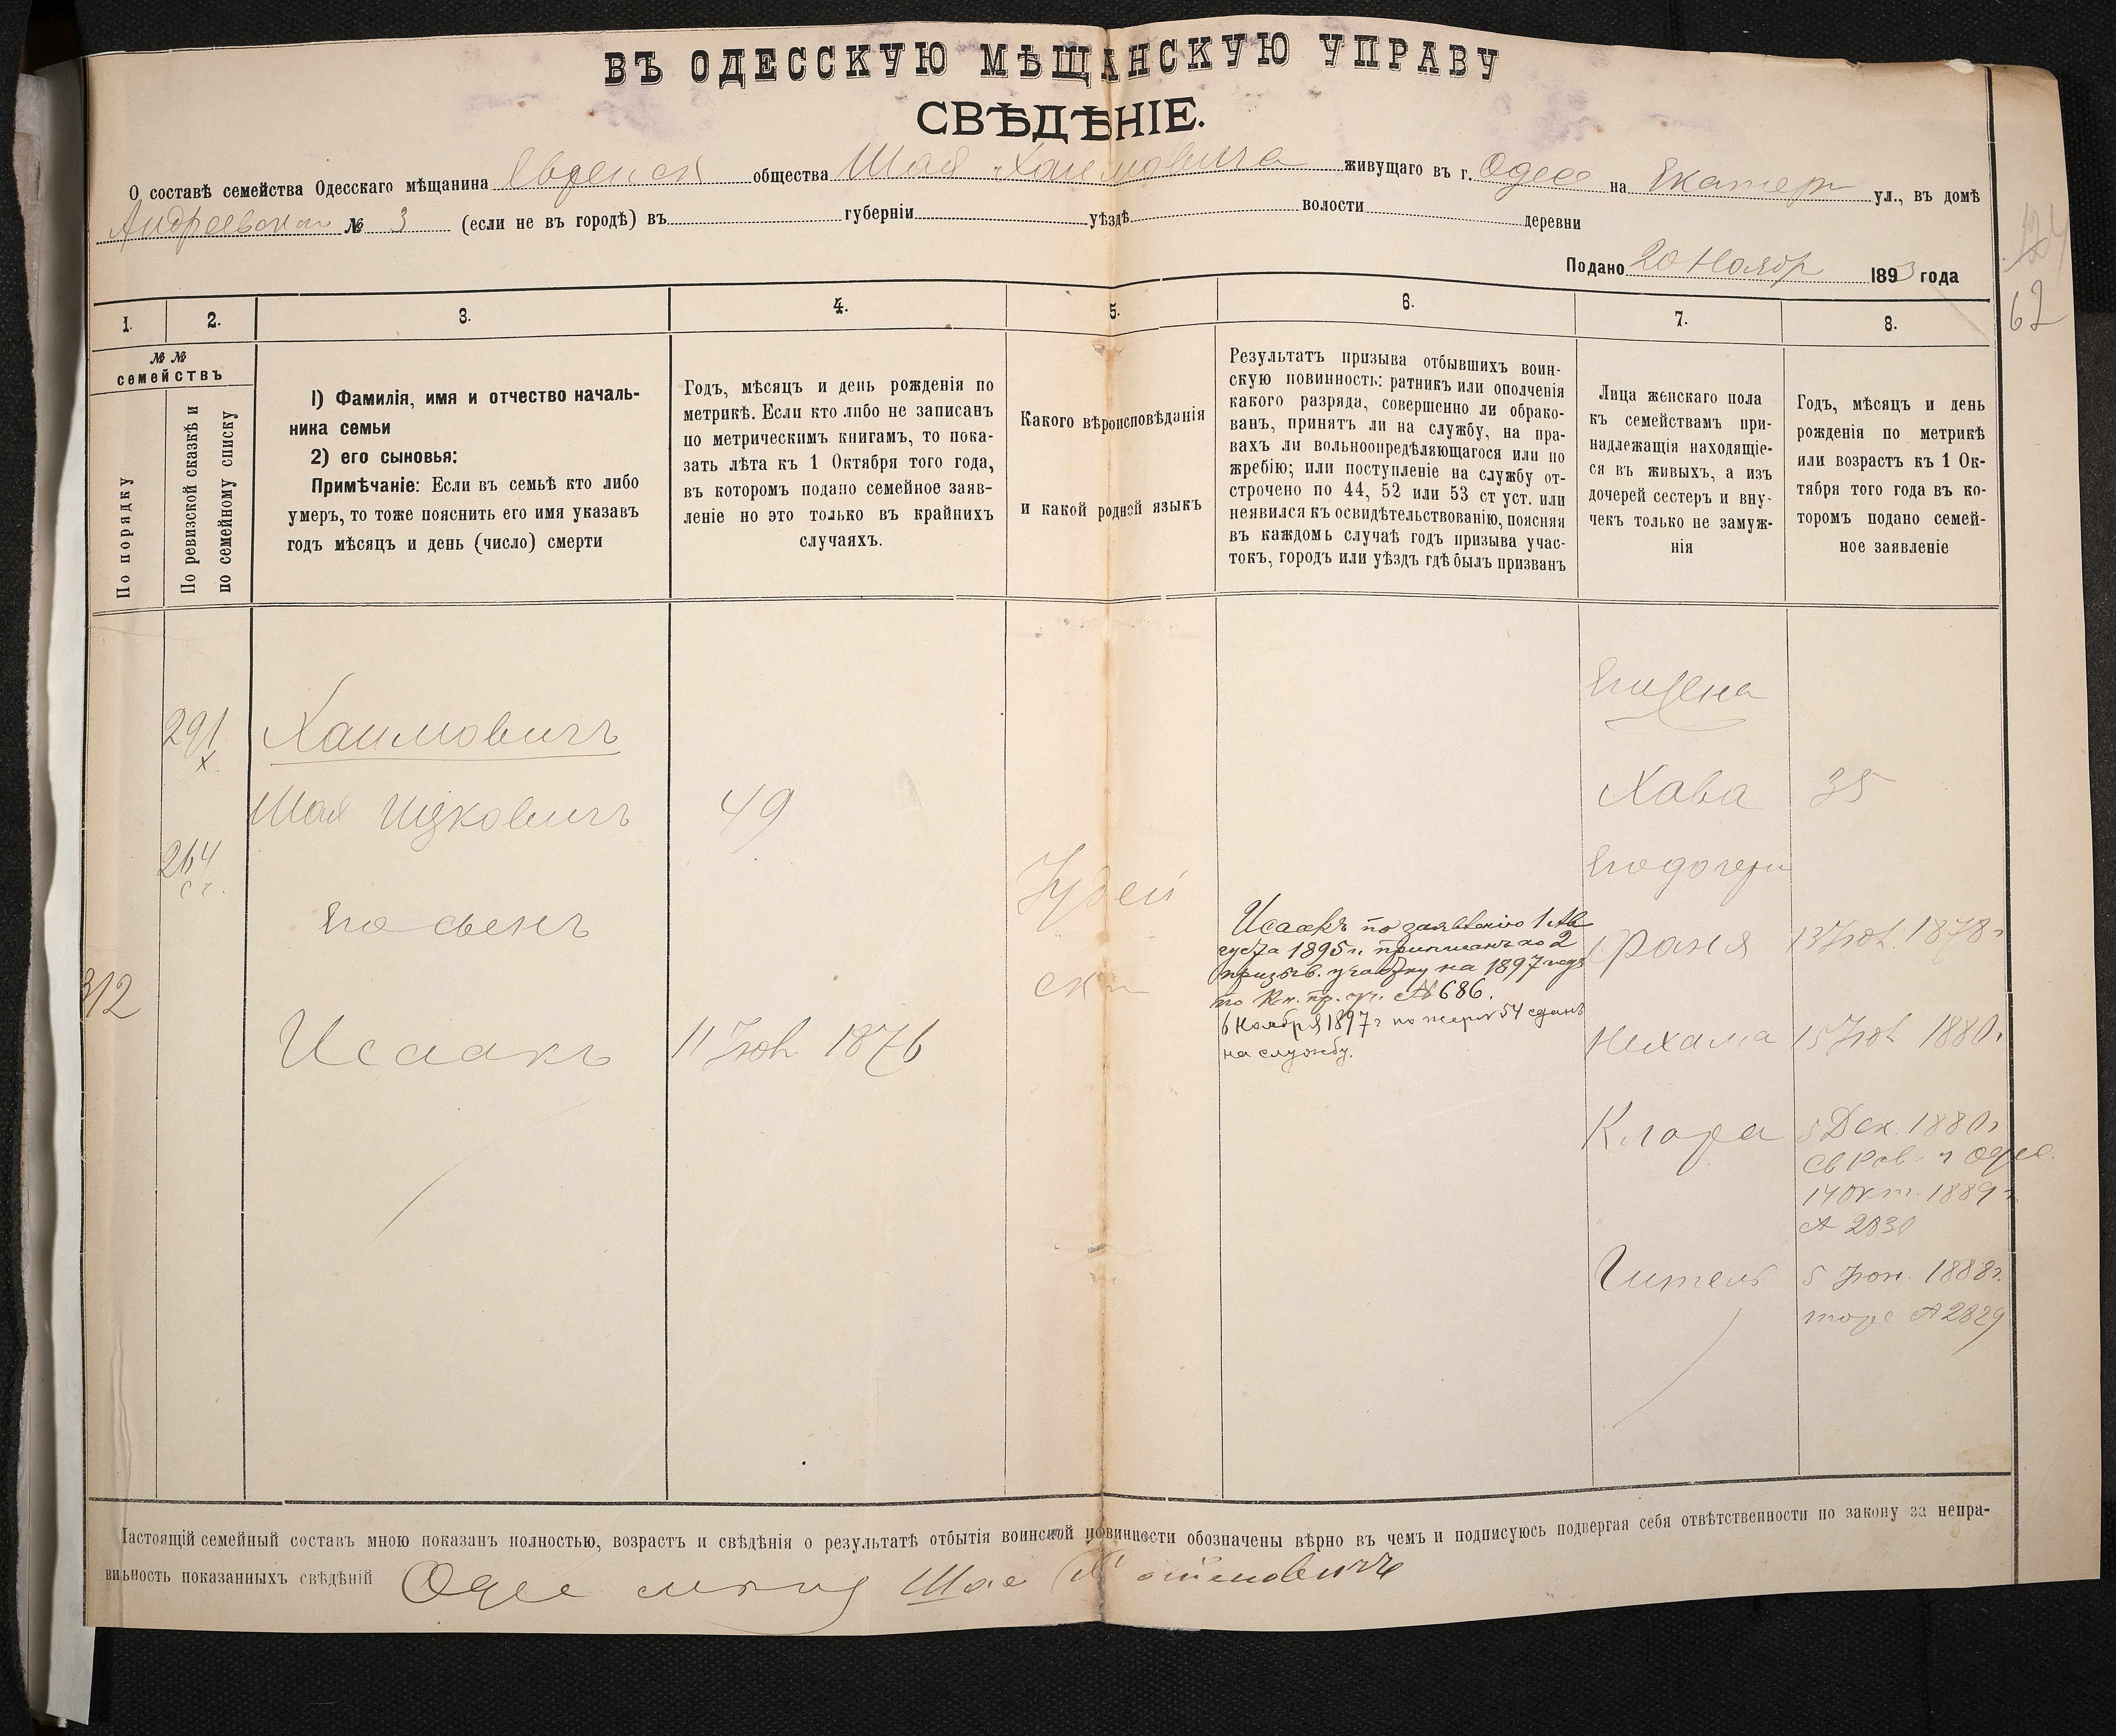 ВЪ ОДЕССКУЮ МѢЩАНСКУЮ УПРАВУ
СВѢДѢНІЕ.
О составѣ семейства Одесскаго мѣщанина Еврейск общества Шая Хаимовича живущаго въ г. Одессѣ на Екатер ул., въ домѣ
Андреевской № 3 (если не въ городѣ) въ губерніи уѣздѣ волости деревни
Подано 20 Ноябр 1893 года
124
62
1. 2. 3. 4. 5. 6. 7. 8.
№ №
семействъ
По порядку
По ревизской сказкѣ и
по семейному списку
1) Фамилія, имя и отчество началь-
ника семьи
2) его сыновья:
Примѣчаніе: Если въ семьѣ кто либо
умеръ, то тоже пояснить его имя указавъ
годъ мѣсяцъ и день (число) смерти
Годъ, мѣсяцъ и день рожденія по
метрикѣ. Если кто либо не записанъ
по метрическимъ книгамъ, то пока-
зать лѣта къ 1 Октября того года,
въ которомъ подано семейное заяв-
леніе но это только въ крайнихъ
случаяхъ.
Какого вѣроисповѣданія
и какой родной языкъ
Результатъ призыва отбывшихъ воин-
скую повинность: ратникъ или ополченія
какого разряда, совершенно ли обрако-
ванъ, принятъ ли на службу, на пра-
вахъ ли вольноопредѣляющагося или по
жребію; или поступленіе на службу от-
строчено по 44, 52 или 53 ст уст. или
неявился къ освидѣтельствованію, поясняя
въ каждомъ случаѣ годъ призыва учас-
токъ, городъ или уѣздъ гдѣ былъ призванъ
Лица женскаго пола
къ семействамъ при-
надлежащія находящіе-
ся въ живыхъ, а изъ
дочерей сестеръ и вну-
чекъ только не замуж-
нія
Годъ, мѣсяцъ и день
рожденія по метрикѣ
или возрастъ къ 1 Ок-
тября того года въ ко-
торомъ подано семей-
ное заявленіе
Его жена
291 Хаимовичъ
х
Шая Ицковичъ 49 Хава 35
264
сч.
Его дочери
Его сынъ
Іудей
ск
312
Исаакъ 11 Іюл. 1876
Исаакъ по заявленію 1 Ав
густа 1895 г. приписанъ ко 2
призыв. участку на 1897 годъ
по Кн. пр. уч. № 686.
6 Ноября 1897 г по жереб 54 сданъ
на службу.
Фаня 13 Іюл. 1878 г
Нехама 15 Іюл 1880 г
Клара 5 Дек. 1880 г
Св Рав. г Одес.
14 Окт. 1889 г
№ 2830
Гитель 5 Іюн. 1888 г.
тоже № 2829
Настоящій семейный составъ мною показанъ полностью, возрастъ и свѣдѣнія о результатѣ отбытія воинской повинности обозначены вѣрно въ чемъ и подписуюсь подвергая себя отвѣтственности по закону за непра-
вильность показанныхъ свѣдѣній Одес Шае Хаимовичъ